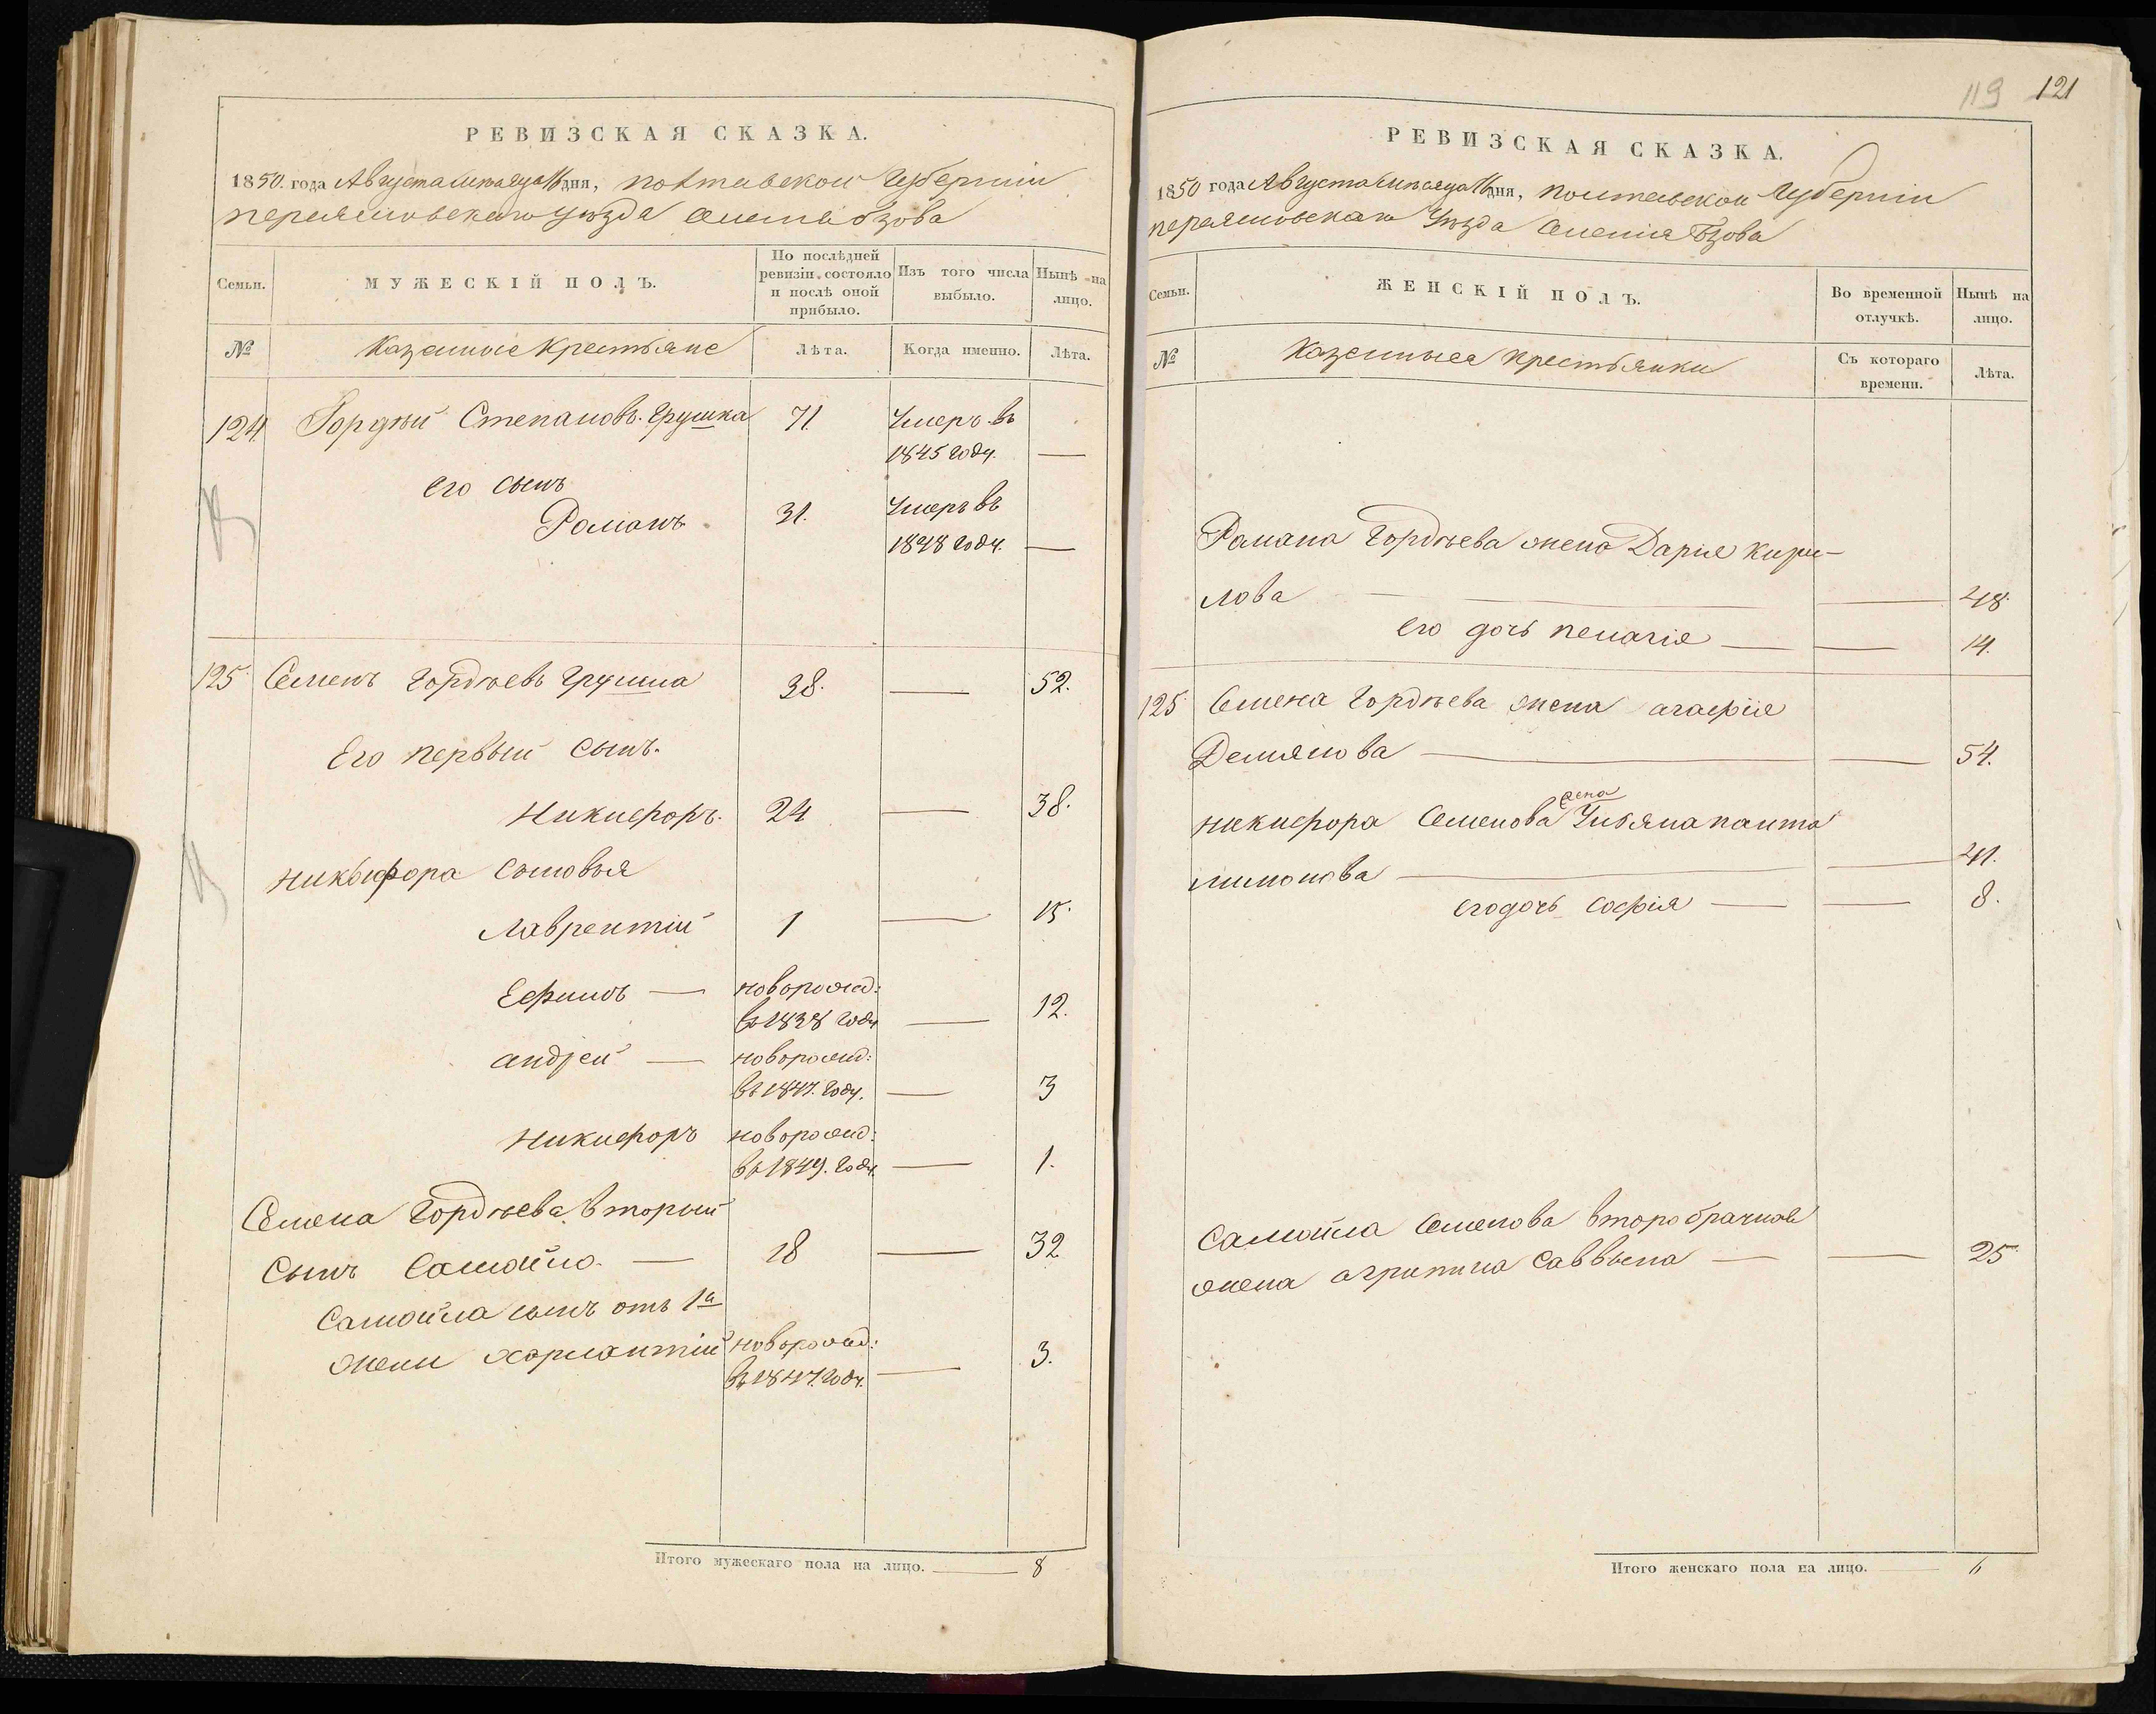 РЕВИЗСКАЯ СКАЗКА.
1850. года Августа месяца 16 дня, Полтавской Губерніи
переясловскаго уѣзда Селенія бзова
Семьи.
МУЖЕСКІЙ ПОЛЪ.
По послѣдней ревизіи состояло и послѣ оной прибыло.
Изъ того числа выбыло.
Нынѣ на лицо.
№
Казенные Крестьяне
Лѣта.
Когда именно.
Лѣта.
124 Гордѣй Степановъ Грушка 71. Умеръ въ
1845 году. —
его сынъ
Романъ 31. Умеръ въ
1848 году. —
125. Семенъ Гордѣевъ Грушка 38. — 52.
Его первый сынъ.
Никифоръ. 24 — 38.
Никифора сыновья
Лаврентій 1 — 15.
Ефимъ — новорожд:
въ 1838 году — 12.
андрей — новорожд:
въ 1847. году. — 3
Никифоръ новорожд:
въ 1849. году. — 1.
Семена Гордѣева вторый
сынъ Самойло. — 18 — 32
Самойла сынъ отъ 1а
жены харлантій новорожд:
въ 1847. году. — 3.
Итого мужескаго пола на лицо. — 8
119 121
РЕВИЗСКАЯ СКАЗКА.
1850 года Августа месяца 16 дня, Полтавской Губерніи
переясловскаго Уѣзда Селенія Бзова
Семьи.
ЖЕНСКІЙ ПОЛЪ.
Во временной отлучкѣ.
Нынѣ на лицо.
№
Казенныя крестьянки
Съ котораго времени.
Лѣта.
Романа Гордѣева жена Дарія Кири-
лова — — 48.
его дочь пелагія — — 14.
125. Семена Гордѣева жена агафія
Демянова — — 54.
жена
Никифора Семенова Ульяна панта
лимонова — — 41.
его дочь софія — — 8.
Самойла Семенова второбрачная
жена агрипина саввына — — 25.
Итого женскаго пола на лицо. — 6